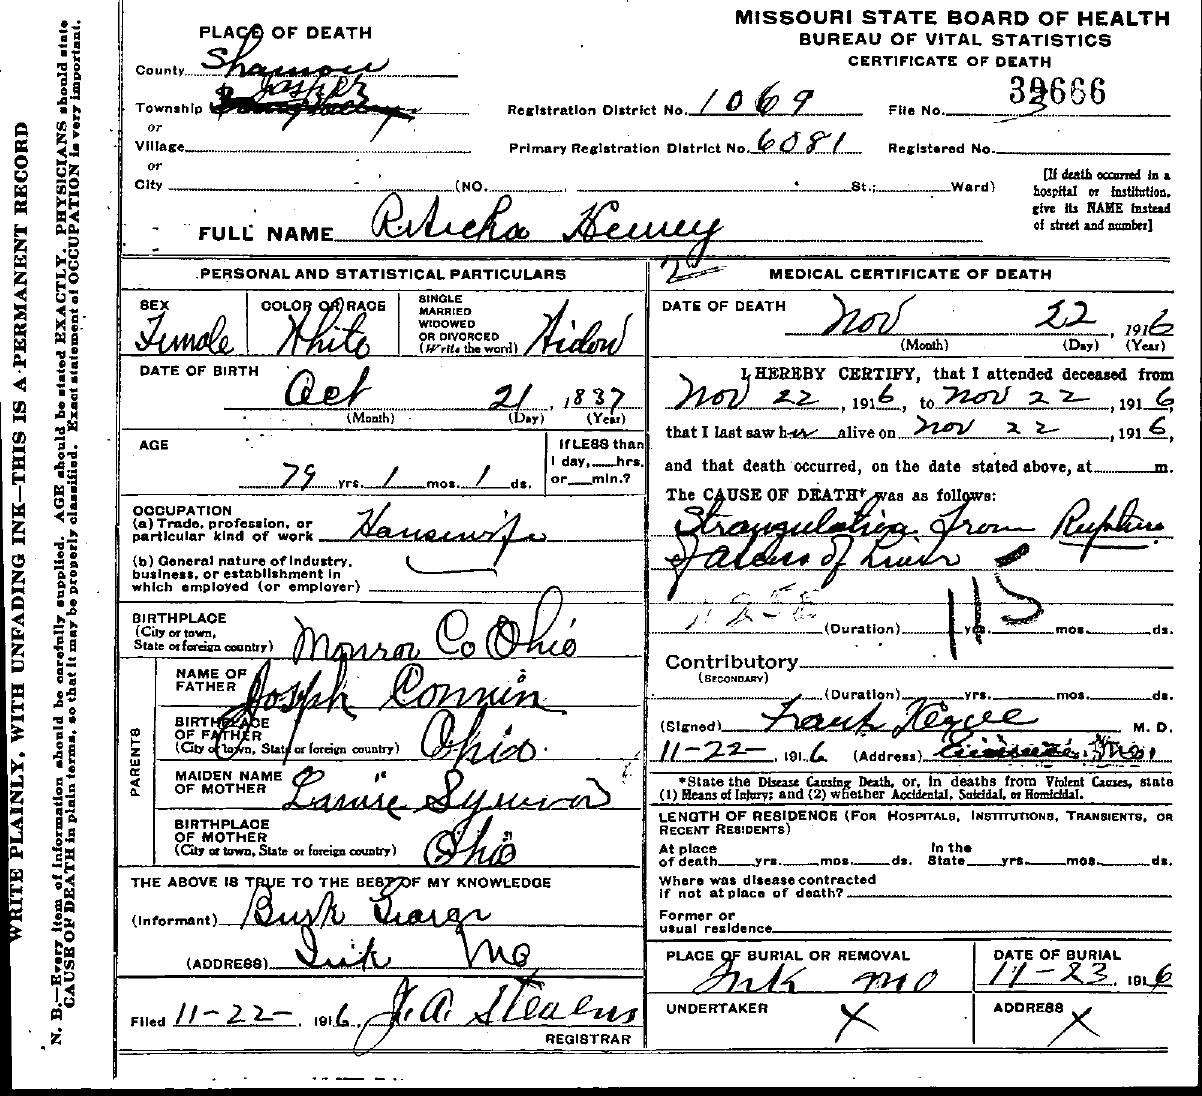 MISSOURI STATE BOARD OF HEALTH
BUREAU OF VITAL STATISTICS
CERTIFICATE OF DEATH
PLACE OF DEATH
County
Township Jasper
or
Village
or
City (NO. St.; Ward)
Registration District No. 1069
File No. 39666
Primary Registration District No. 6081
Registered No.
[If death occurred in a
hospital or institution,
give its NAME instead
of street and number]
FULL NAME
PERSONAL AND STATISTICAL PARTICULARS
SEX
Female
COLOR OR RACE
White
SINGLE
MARRIED
WIDOWED
OR DIVORCED
(Write the word) Widow
DATE OF BIRTH
Oct 21, 1837
(Month) (Day) (Year)
AGE
79 yrs. 1 mos. 1 ds.
If LESS than
1 day, hrs.
or min.?
OCCUPATION
(a) Trade, profession, or
particular kind of work Housewife
(b) General nature of industry,
business, or establishment in
which employed (or employer)
BIRTHPLACE
(City or town,
State or foreign country) Monroe Co Ohio
PARENTS
NAME OF
FATHER Joseph
BIRTHPLACE
OF FATHER
(City or town, State or foreign country) Ohio.
MAIDEN NAME
OF MOTHER
BIRTHPLACE
OF MOTHER
(City or town, State or foreign country) Ohio
THE ABOVE IS TRUE TO THE BEST OF MY KNOWLEDGE
(Informant)
(ADDRESS) Ink Mo
Filed 11-22-, 1916, J. A. Stearns
REGISTRAR
2
MEDICAL CERTIFICATE OF DEATH
DATE OF DEATH
Nov 22, 1916
(Month) (Day) (Year)
I HEREBY CERTIFY, that I attended deceased from
Nov 22, 1916, to Nov 22, 1916,
that I last saw her alive on Nov 22, 1916,
and that death occurred, on the date stated above, at m.
The CAUSE OF DEATH* was as follows:
Strangulation from Rupture
of Liver
115
(Duration) yrs. mos. ds.
Contributory
(SECONDARY)
(Duration) yrs. mos. ds.
(Signed) Frank M. D.
11-22-, 1916 (Address) Mo.
*State the Disease Causing Death, or, in deaths from Violent Causes, state
(1) Means of Injury; and (2) whether Accidental, Suicidal, or Homicidal.
LENGTH OF RESIDENCE (FOR HOSPITALS, INSTITUTIONS, TRANSIENTS, OR
RECENT RESIDENTS)
At place In the
of death yrs. mos. ds. State yrs. mos. ds.
Where was disease contracted
if not at place of death?
Former or
usual residence
PLACE OF BURIAL OR REMOVAL
Ink Mo
DATE OF BURIAL
11-23, 1916
UNDERTAKER
X
ADDRESS
X
WRITE PLAINLY, WITH UNFADING INK—THIS IS A PERMANENT RECORD
N. B.—Every item of information should be carefully supplied. AGE should be stated EXACTLY. PHYSICIANS should state
CAUSE OF DEATH in plain terms, so that it may be properly classified. Exact statement of OCCUPATION is very important.